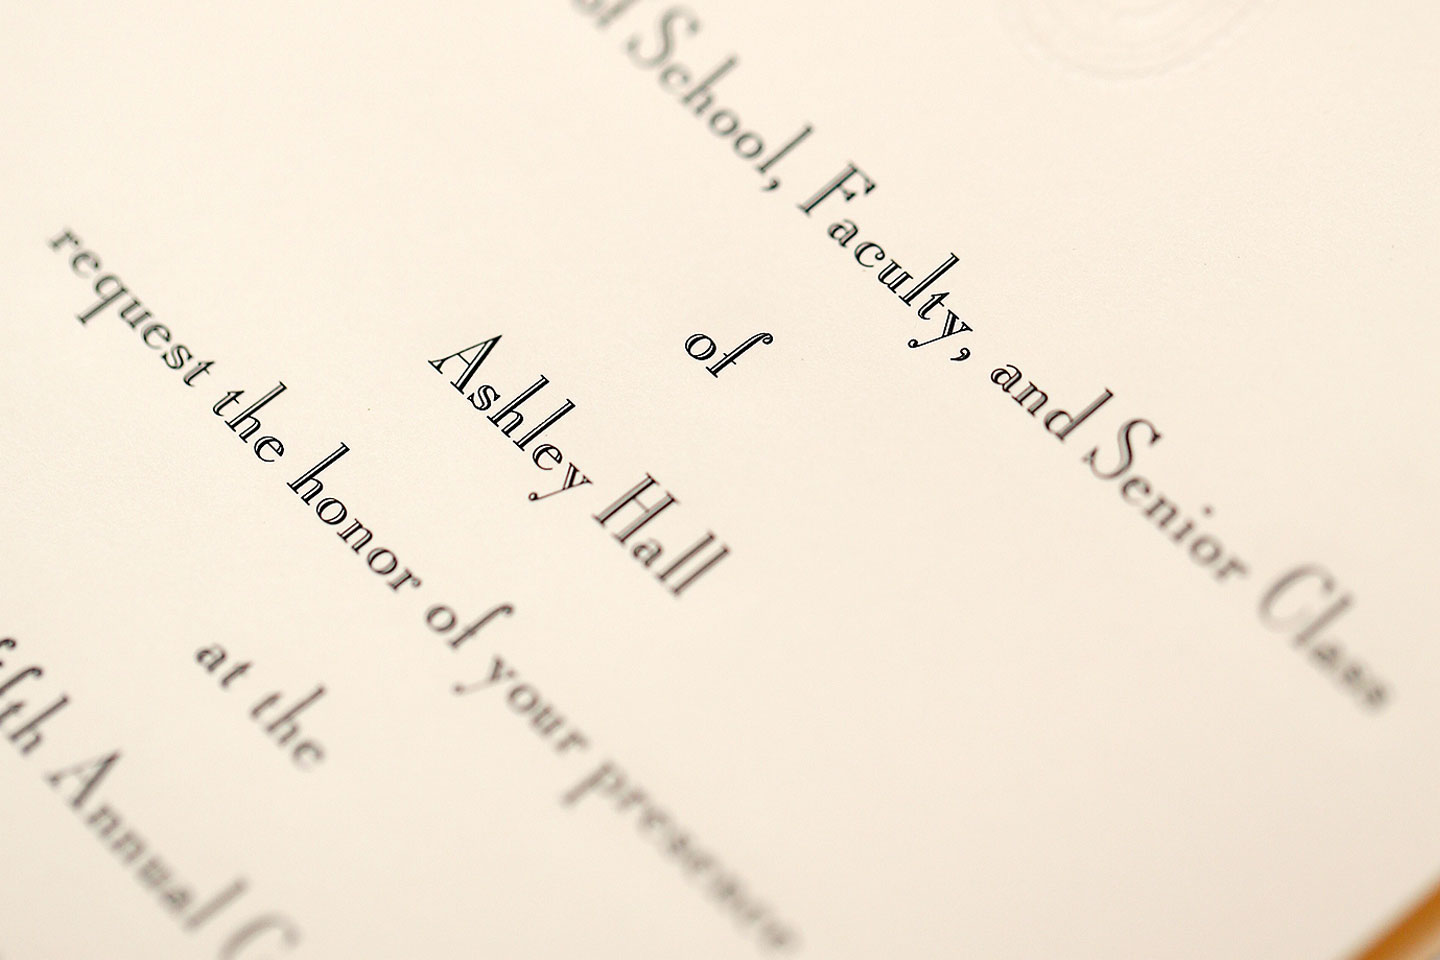 School, Faculty, and Senior Class
of
Ashley Hall
request the honor of your presence
at the
Annual